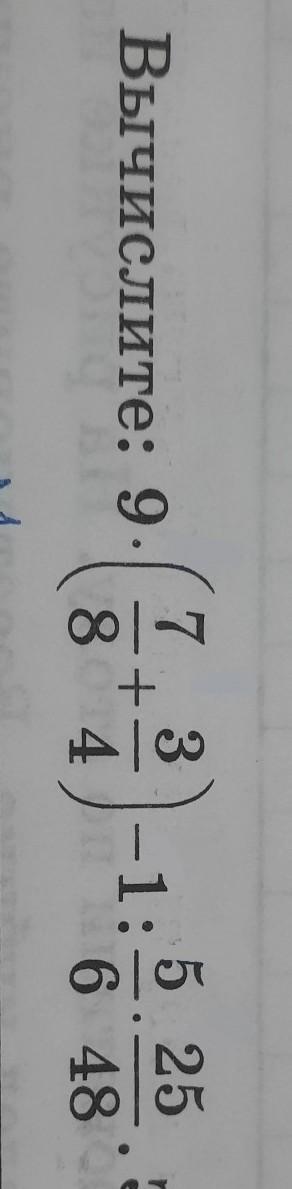 Вычислите: 9 · (7/8 + 3/4) − 1 : 5/6 · 25/48.